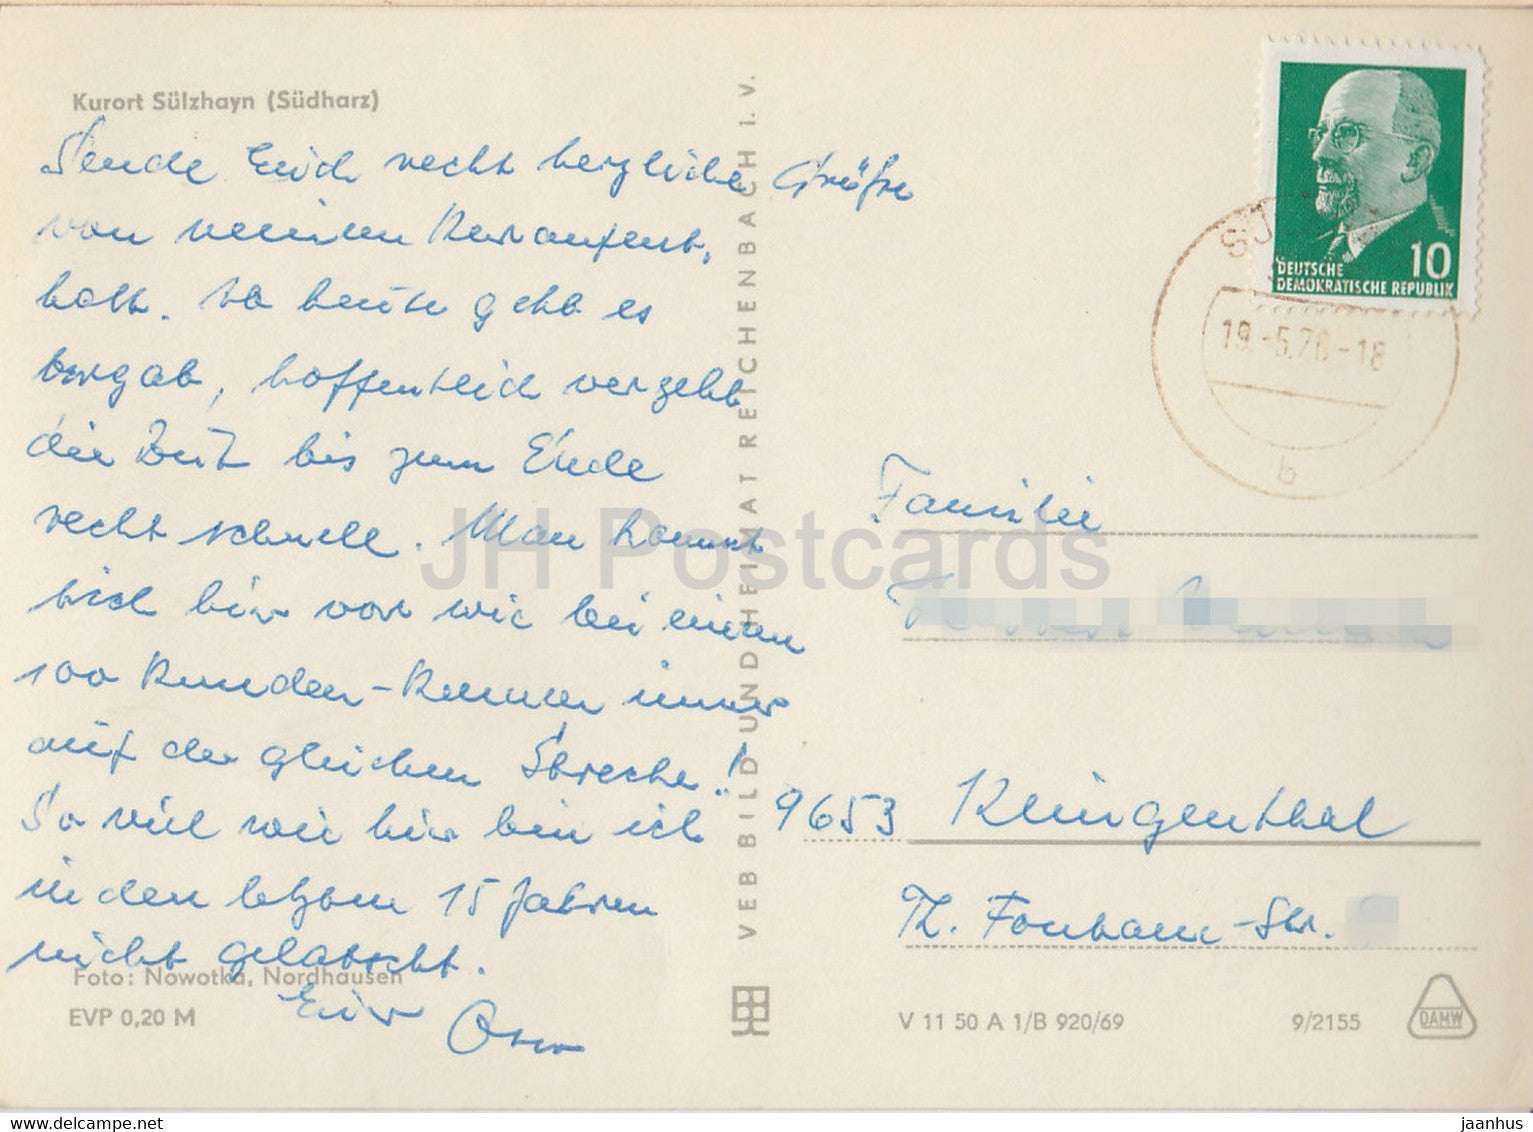 Kurort Sülzhayn (Südharz)
Sende Euch recht herzliche Grüße
von meinem Kuraufent-
halt. Ab heute geht es
bergab, hoffentlich vergeht
die Zeit bis zum Ende
recht schnell. Man kommt
sich hier vor wie bei einem
100 Runden-Rennen immer
auf der gleichen Strecke!
So viel wie hier bin ich
in den letzten 15 Jahren
nicht gelatscht.
Euer
Foto: Nowotka, Nordhausen
EVP 0,20 M
VEB BILD UND HEIMAT REICHENBACH I. V.
DEUTSCHE
DEMOKRATISCHE REPUBLIK
10
19.-5.76.-18
b
Familie
9653 Klingenthal
Th. Fontane-Str.
V 11 50 A 1/B 920/69
9/2155
DAMW
JH Postcards
www.delcampe.net
jaanhus